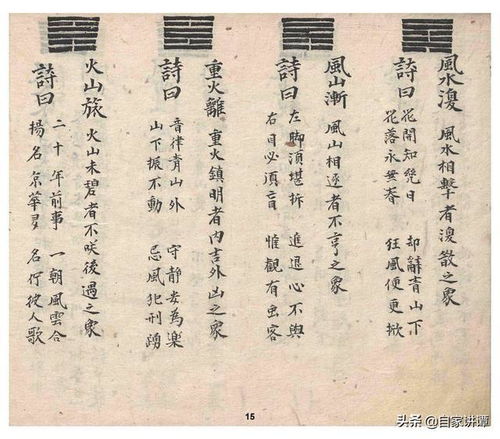 風水渙 風水相擊者渙散之象
詩曰
花開知幾日 却辭青山下
花落永無春 狂風便更掀
風山漸 風山相逆者不亨之象
詩曰
左脚須堪拆 進退心不與
右目必須盲 惟觀有虫客
重火離 重火鎮明者内吉外凶之象
詩曰
音律青山外 守静安為樂
山下振不動 忌風犯刑踴
火山旅 火山未碧者不咲後遇之象
詩曰
二十年前事 一朝風雲合
揚名京華 名佇從人歌
15
头条@自家讲谭